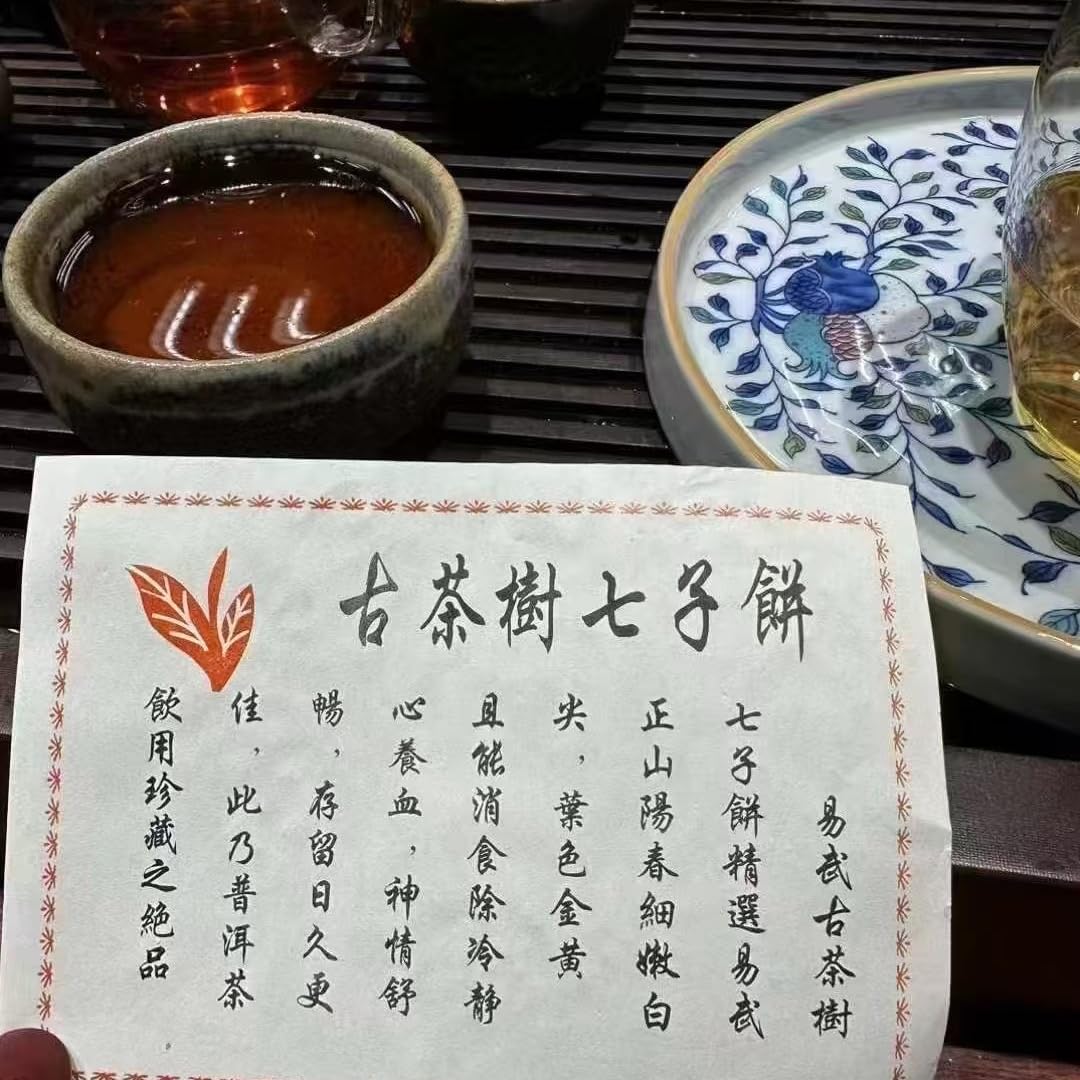 古茶樹七子餅
易武古茶樹
七子餅精選易武
正山陽春細嫩白
尖，葉色金黃
且能消食除冷静
心養血，神情舒
暢，存留日久更
佳，此乃普洱茶
飲用珍藏之絶品